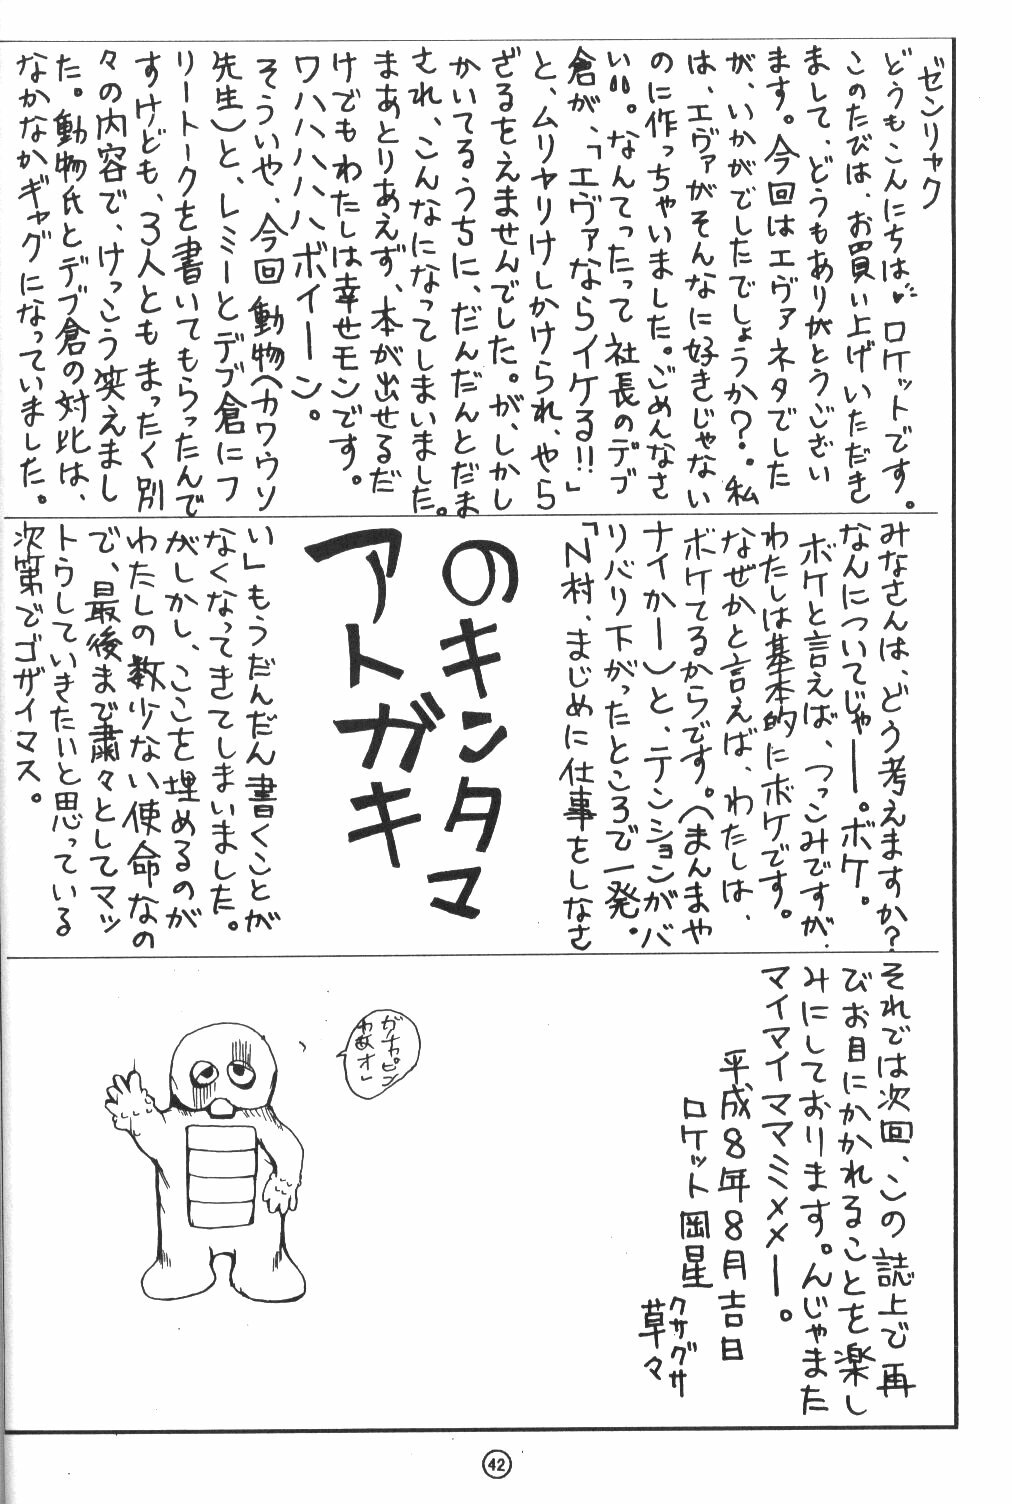 ゼンリャク
どうもこんにちは♥ロケットです。
このたびは、お買い上げいただき
まして、どうもありがとうござい
ます。今回はエヴァネタでした
が、いかがでしたでしょうか？。私
は、エヴァがそんなに好きじゃない
のに作っちゃいました。ごめんなさ
い!!。なんてったって社長のデブ
倉が、「エヴァならイケる!!」
と、ムリヤリけしかけられ、やら
ざるをえませんでした。が、しかし
かいてるうちに、だんだんとだま
され、こんなになってしまいました。
まあとりあえず、本が出せるだ
けでもわたしは幸せモンです。
ワハハハハハボイーン。
そういや、今回動物(カワウソ
先生)と、レミーとデブ倉にフ
リートークを書いてもらったんで
すけども、3人ともまったく別
々の内容で、けっこう笑えまし
た。動物氏とデブ倉の対比は、
なかなかギャグになっていました。
みなさんは、どう考えますか？
なんについてじゃー。ボケ。
ボケと言えば、つっこみですが、
わたしは基本的にボケです。
なぜかと言えば、わたしは、
ボケてるからです。(まんまや
ナイかー)と、テンションがバ
リバリ下がったところで一発。
「N村、まじめに仕事をしなさ
のキンタマ
アトガキ
い」もうだんだん書くことが
なくなってきてしまいました。
がしかし、ここを埋めるのが
わたしの数少ない使命なの
で、最後まで粛々としてマッ
トウしていきたいと思っている
次第でゴザイマス。
それでは次回、この誌上で再
びお目にかかれることを楽し
みにしております。んじゃまた
マイマイママミメメー。
平成8年8月吉日
ロケット岡星
クサグサ
草々
ガチャピン